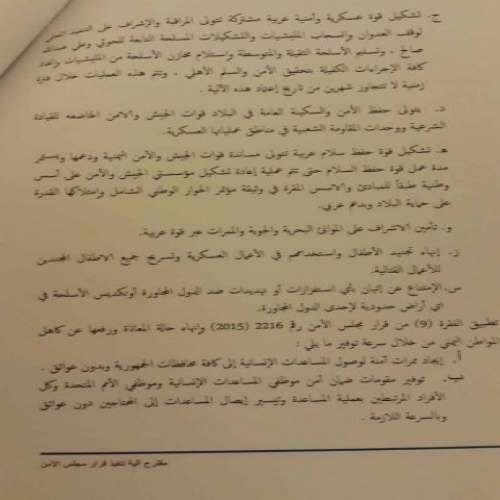 ج. تشكيل قوة عسكرية وأمنية عربية مشتركة تتولى المراقبة والإشراف على التنفيذ الفعلي
لوقف العدوان وانسحاب المليشيات والتشكيلات المسلحة التابعة للحوثي وعلي عبدالله
صالح ، وتسليم الأسلحة الثقيلة والمتوسطة واستلام مخازن الأسلحة من المليشيات وإتخاذ
كافة الإجراءات الكفيلة بتحقيق الأمن والسلم الأهلي ، وتتم هذه العمليات خلال فترة
زمنية لا تتجاوز شهرين من تاريخ إعتماد هذه الآلية .
د. يتولى حفظ الأمن والسكينة العامة في البلاد قوات الجيش والامن الخاضعه للقيادة
الشرعية ووحدات المقاومة الشعبية في مناطق عملياتها العسكرية.
هـ. تشكيل قوة حفظ سلام عربية تتولى مساندة قوات الجيش والأمن اليمنية ودعمها ويستمر
مدة عمل قوة حفظ السلام حتى تتم عملية إعادة تشكيل مؤسستي الجيش والأمن على أسس
وطنية طبقاً للمبادئ والاسس المقرة في وثيقة مؤتمر الحوار الوطني الشامل وامتلاكها القدرة
على حماية البلاد وبدعم عربي.
و. تأمين الاشراف على الموانئ البحرية والجوية والممرات عبر قوة عربية.
ز. إنهاء تجنيد الأطفال واستخدامهم في الأعمال العسكرية وتسريح جميع الاطفال المجندين
للأعمال القتالية.
س. الإمتناع عن إتيان بأي استفزازات أو تهديدات ضد الدول المجاورة أوتكديس الأسلحة في
اي أراض حدودية لإحدى الدول المجاورة.
تطبيق الفقرة (9) من قرار مجلس الأمن رقم 2216 (2015) وإنهاء حالة المعاناة ورفعها عن كاهل
المواطن اليمني من خلال سرعة توفير ما يلي :
أ. إيجاد ممرات آمنة لوصول المساعدات الإنسانية إلى كافة محافظات الجمهورية وبدون عوائق .
ب. توفير مقومات ضمان أمن موظفي المساعدات الإنسانية وموظفي الأمم المتحدة وكل
الأفراد المرتبطين بعملية المساعدة وتيسير إيصال المساعدات إلى المحتاجين دون عوائق
وبالسرعة اللازمة .
مقترح الية تنفيذ قرار مجلس الأمن